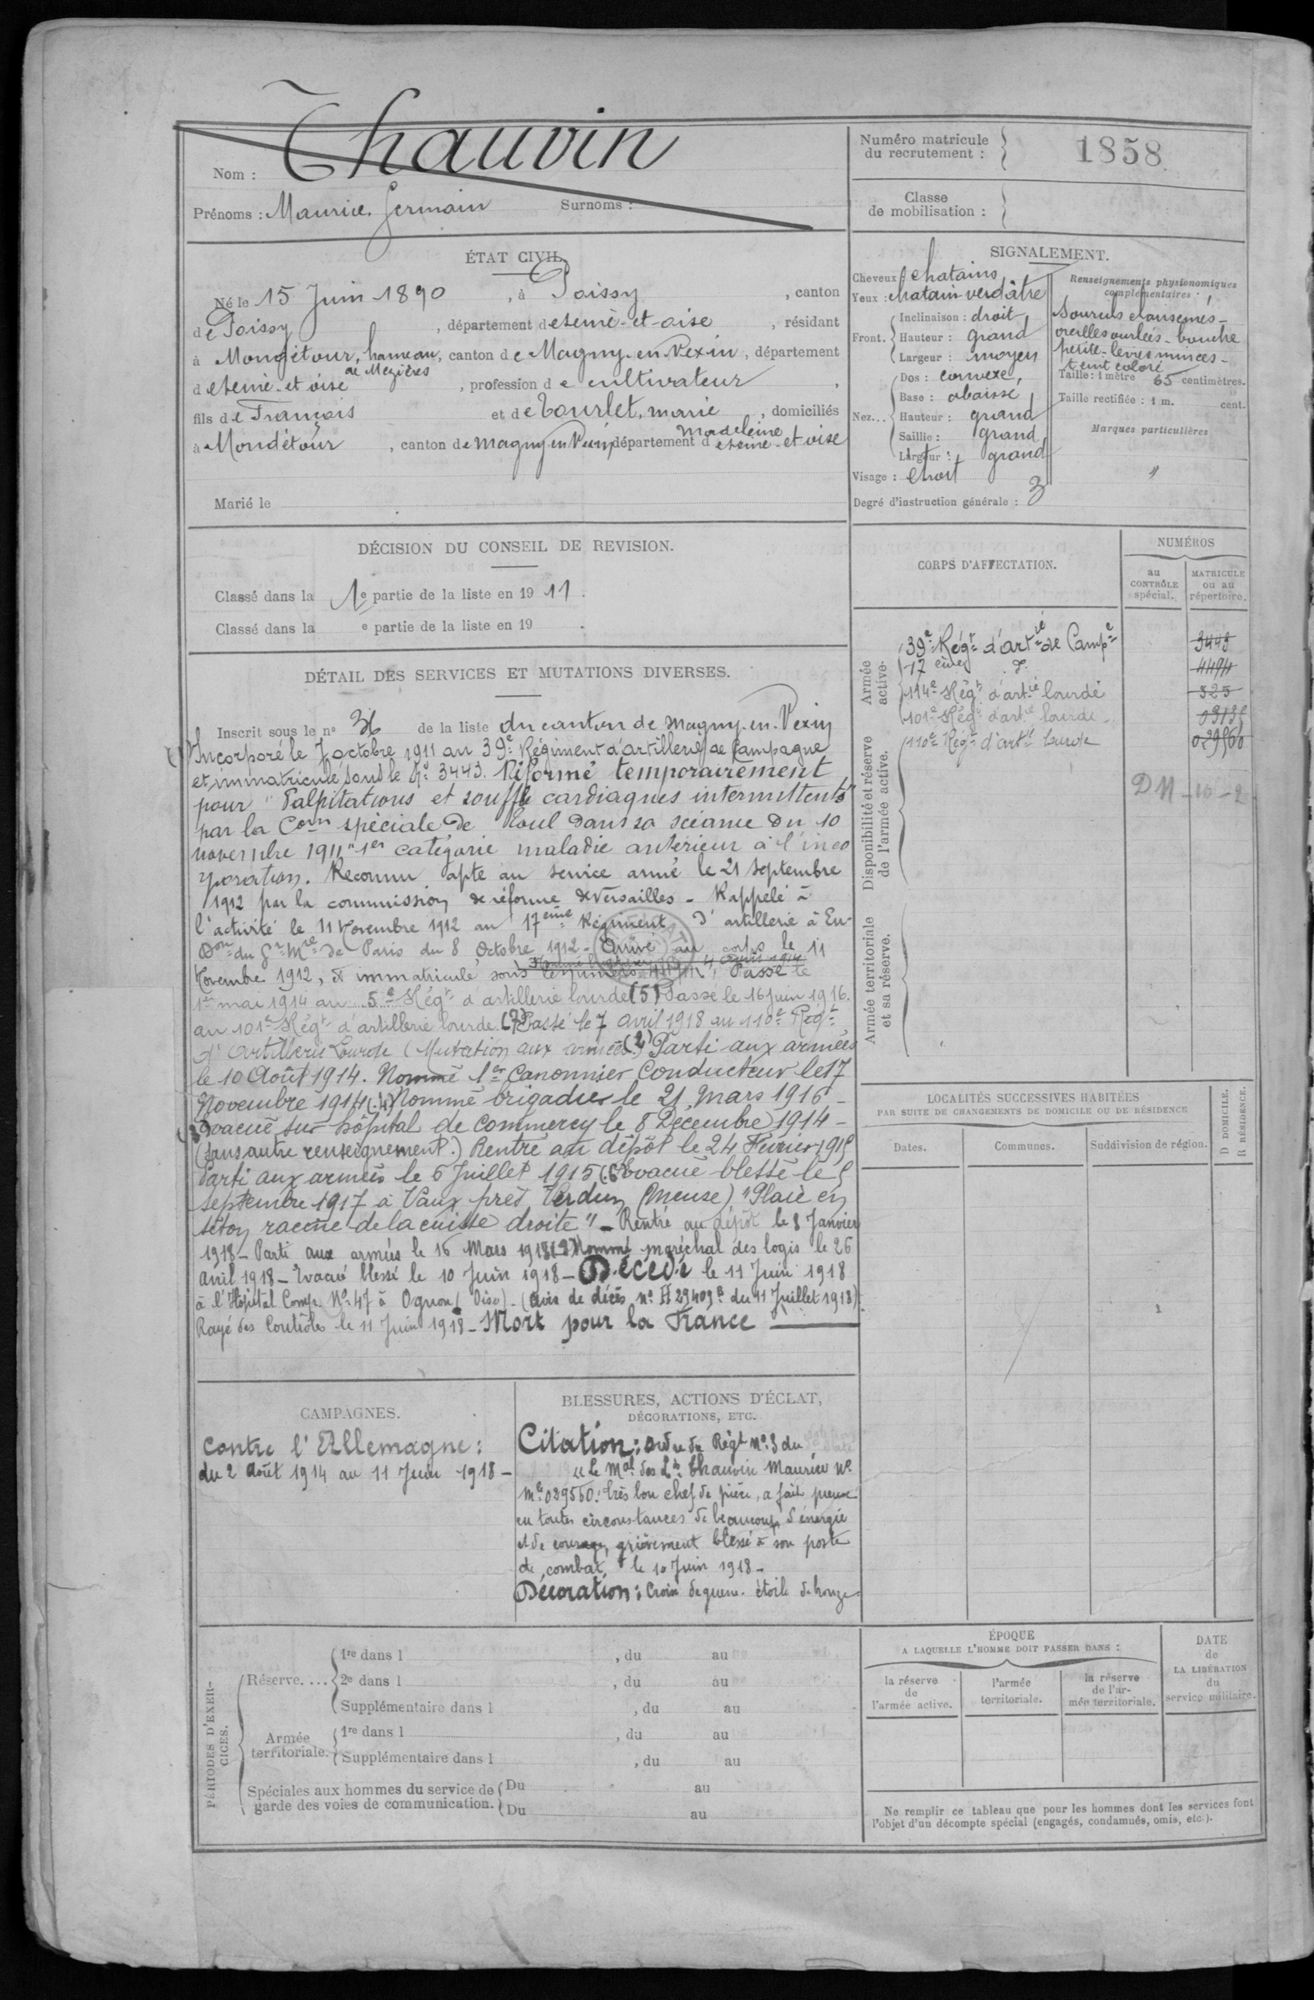 Nom : Chauvin
Prénoms : Maurice, Germain Surnoms :
Numéro matricule du recrutement : 1858
Classe de mobilisation :
ÉTAT CIVIL.
Né le 15 Juin 1890, à Poissy, canton
de Poissy, département de Seine-et-oise, résidant
à Mondétour, hameau de Mézières, canton de Magny-en-Vexin, département
de Seine-et-oise, profession de cultivateur,
fils de François et de Tourlet, marie Madeleine, domiciliés
à Mondétour, canton de magny-en-Vexin département de Seine-et-oise
Marié le
SIGNALEMENT.
Cheveux chatains
Yeux : chatain verdâtre
Front. Inclinaison : droit
Hauteur : grand
Largeur : moyen
Nez... Dos : convexe,
Base : abaissé
Hauteur : grand
Saillie : grand
Largeur : grand
Visage : étroit
Degré d'instruction générale : 3
Renseignements physionomiques complémentaires :
Sourcils clairsemés -
oreilles ourlées - bouche
petite - lèvres minces -
teint coloré
Taille : 1 mètre 65 centimètres.
Taille rectifiée : 1 m. cent.
Marques particulières
"
DÉCISION DU CONSEIL DE REVISION.
Classé dans la 1e partie de la liste en 1911.
Classé dans la e partie de la liste en 19 .
DÉTAIL DES SERVICES ET MUTATIONS DIVERSES.
Inscrit sous le no de la liste du canton de Magny-en-Vexin
Incorporé le 7 octobre 1911 au 39e Régiment d'artillerie de Campagne
et immatriculé sous le No 3443. Réformé temporairement
pour "Palpitations et souffle cardiaques intermittents"
par la Comon spéciale de Toul dans sa séance du 10
novembre 1911 "1er catégorie maladie antérieur à l'inco
poration. Reconnu apte au service armé le 21 Septembre
1912 par la commission de réforme de Versailles - Rappelé à
l'activité le 11 Novembre 1912 au 17ème Régiment d'artillerie à
du Gr Mre de Paris du 8 Octobre 1912 - Arrivé au corps le 11
Novembre 1912, et immatriculé sous le numéro Passé le
1er mai 1914 au 5e Régt d'artillerie lourde (5) Passé le 16 juin 1916.
au 101e Régt d'artillerie lourde. (7) Passé le 7 avril 1918 au 110e Régt
d'Artillerie Lourde (Mutation aux armées) (2) Parti aux armées
le 10 Août 1914. Nommé 1er Canonnier Conducteur le 17
Novembre 1914 (4) Nommé brigadier le 21 mars 1916 -
(3) Evacué sur hôpital de Commercy le 8 Décembre 1914 -
(sans autre renseignement.) Rentré au dépôt le 24 Février 1915
Parti aux armées le 6 Juillet 1915 (6) Evacué blessé le 5
septembre 1917 à Vaux près Verdun (Meuse) "Plaie en
séton racine de la cuisse droite" - Rentré au dépôt le 8 Janvier
1918 - Parti aux armées le 16 Mars 1918 (8) Nommé maréchal des logis le 26
avril 1918 - Evacué blessé le 10 Juin 1918 - Décédé le 11 Juin 1918
à l'Hôpital Comp. No 47 à Ognon (Oise) - (Avis de décès No du 11 Juillet 1918)
Rayé des Contrôles le 11 Juin 1918 - Mort pour la France
CORPS D'AFFECTATION.
NUMÉROS
au CONTRÔLE spécial.
MATRICULE ou au répertoire.
Armée active.
39e Régt d'artie de Campe 3443
17 eme d° 4494
114e Régt d'artie lourde 525
101e Régt d'artie lourde
110e Régt d'artie lourde 029560
Disponibilité et réserve de l'armée active.
DM-10-2
Armée territoriale et sa réserve.
LOCALITÉS SUCCESSIVES HABITÉES
PAR SUITE DE CHANGEMENTS DE DOMICILE OU DE RÉSIDENCE
Dates. Communes. Subdivision de région. D DOMICILE. R RÉSIDENCE.
CAMPAGNES.
Contre l'Allemagne :
du 2 Août 1914 au 11 Juin 1918 -
BLESSURES, ACTIONS D'ÉCLAT, DÉCORATIONS, ETC.
Citation : Ordre du Régt No 3 du
"Le Mal des Ls Chauvin Maurice No
Mle 029560 : Très bon chef de pièce, a fait preuve
en toutes circonstances de beaucoup d'énergie
et de courage, grièvement blessé à son poste
de combat, le 10 Juin 1918 -
Décoration : Croix de guerre étoile de bronze
PÉRIODES D'EXERCICES.
Réserve.... 1re dans l , du au
2e dans l , du au
Supplémentaire dans l , du au
Armée territoriale. 1re dans l , du au
Supplémentaire dans l , du au
Spéciales aux hommes du service de garde des voies de communication. Du au
Du au
ÉPOQUE
A LAQUELLE L'HOMME DOIT PASSER DANS :
la réserve de l'armée active.
l'armée territoriale.
la réserve de l'armée territoriale.
DATE de LA LIBÉRATION du service militaire.
Ne remplir ce tableau que pour les hommes dont les services font
l'objet d'un décompte spécial (engagés, condamnés, omis, etc.).